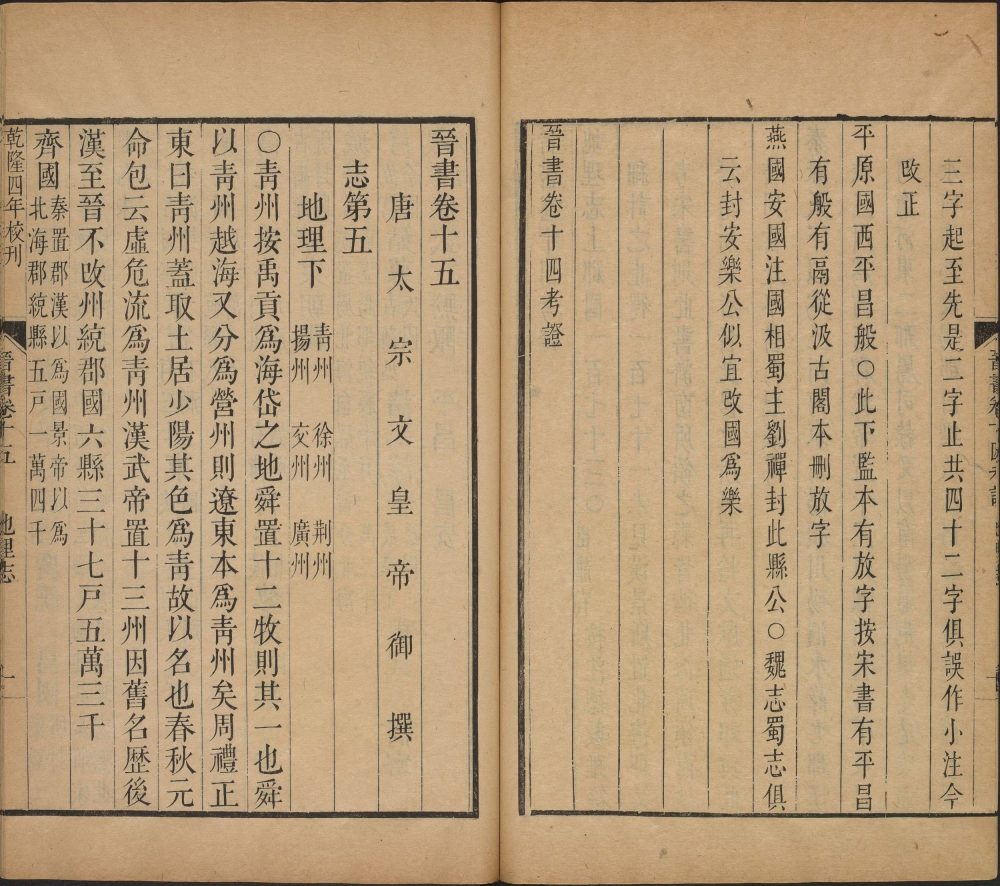 三字起至先是二字止共四十二字俱誤作小注今
改正
平原國西平昌般○此下監本有放字按宋書有平昌
有般有鬲從汲古閣本刪放字
燕國安國注國相蜀主劉禪封此縣公○魏志蜀志俱
云封安樂公似宜改國爲樂
晉書卷十四考證
晉書卷十五
唐太宗文皇帝御撰
志第五
地理下
靑州 徐州 荆州
揚州 交州 廣州
○靑州按禹貢爲海岱之地舜置十二牧則其一也舜
以靑州越海又分爲營州則遼東本爲靑州矣周禮正
東曰靑州蓋取土居少陽其色爲靑故以名也春秋元
命包云虛危流爲靑州漢武帝置十三州因舊名歷後
漢至晉不改州統郡國六縣三十七戸五萬三千
齊國
秦置郡漢以爲國景帝以爲
北海郡統縣五戸一萬四千
乾隆四年校刊
晉書卷十五
地理志
一